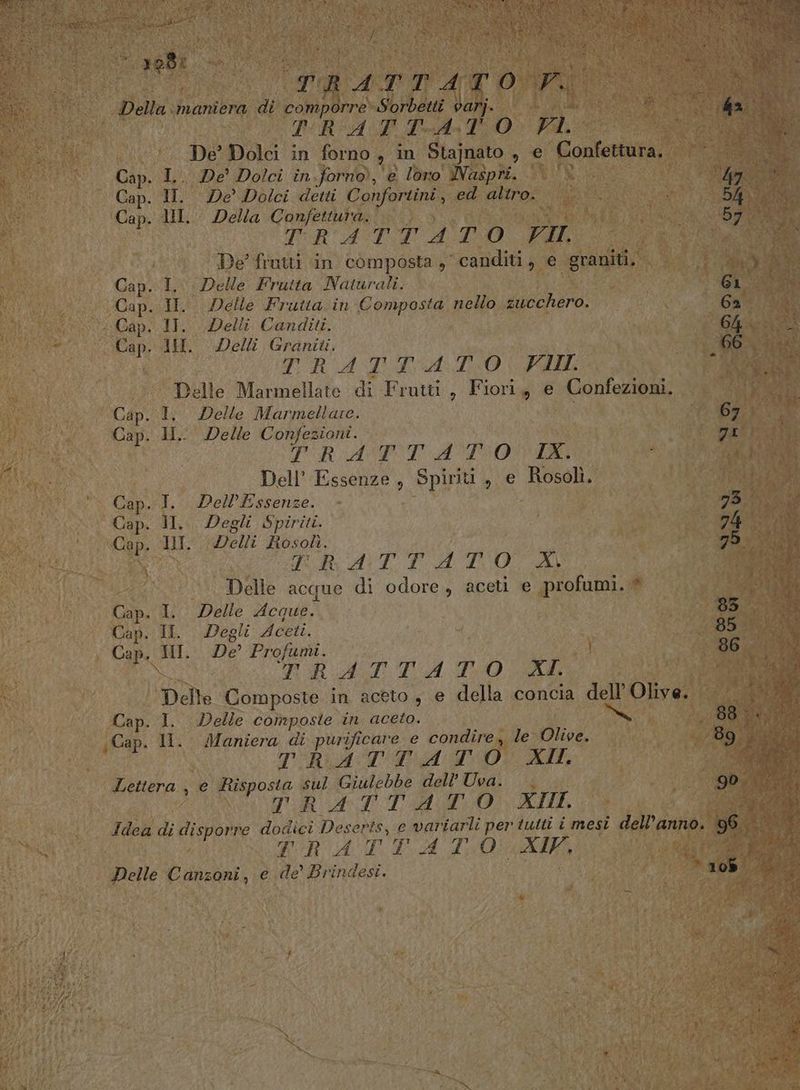 108
TRATTATO V.
Della maniera di comporre Sorbetti varj. 42
TRATTATO VI.
De' Dolci in forno, in Stajnato, e Confettura.
Cap. I. De' Dolci in forno, e loro Naspri. 47
Cap. II. De' Dolci detti Confortini, ed altro. 54
Cap. III. Della Confettura. 57
TRATTATO VII.
De' frutti in composta, canditi, e graniti.
Cap. I. Delle Frutta Naturali. 61
Cap. II. Delle Frutta in Composta nello zucchero. 62
Cap. II. Delli Canditi. 64
Cap. III. Delli Graniti. 66
TRATTATO VIII.
Delle Marmellate di Frutti, Fiori, e Confezioni.
Cap. I. Delle Marmellate. 67
Cap. II. Delle Confezioni. 71
TRATTATO IX.
Dell' Essenze, Spiriti, e Rosolì.
Cap. I. Dell'Essenze. 73
Cap. II. Degli Spiriti. 74
Cap. III. Delli Rosolì. 75
TRATTATO X.
Delle acque di odore, aceti e profumi.
Cap. I. Delle Acque. 83
Cap. II. Degli Aceti. 85
Cap. III. De' Profumi. 86
TRATTATO XI.
Delle Composte in aceto, e della concia dell'Olive.
Cap. I. Delle composte in aceto. 88
Cap. II. Maniera di purificare e condire, le Olive. 89
TRATTATO XII.
Lettera, e Risposta sul Giulebbe dell' Uva. 90
TRATTATO XIII.
Idea di disporre dodici Deserts, e variarli per tutti i mesi dell'anno. 96
TRATTATO XIV.
Delle Canzoni, e de' Brindesi. 105